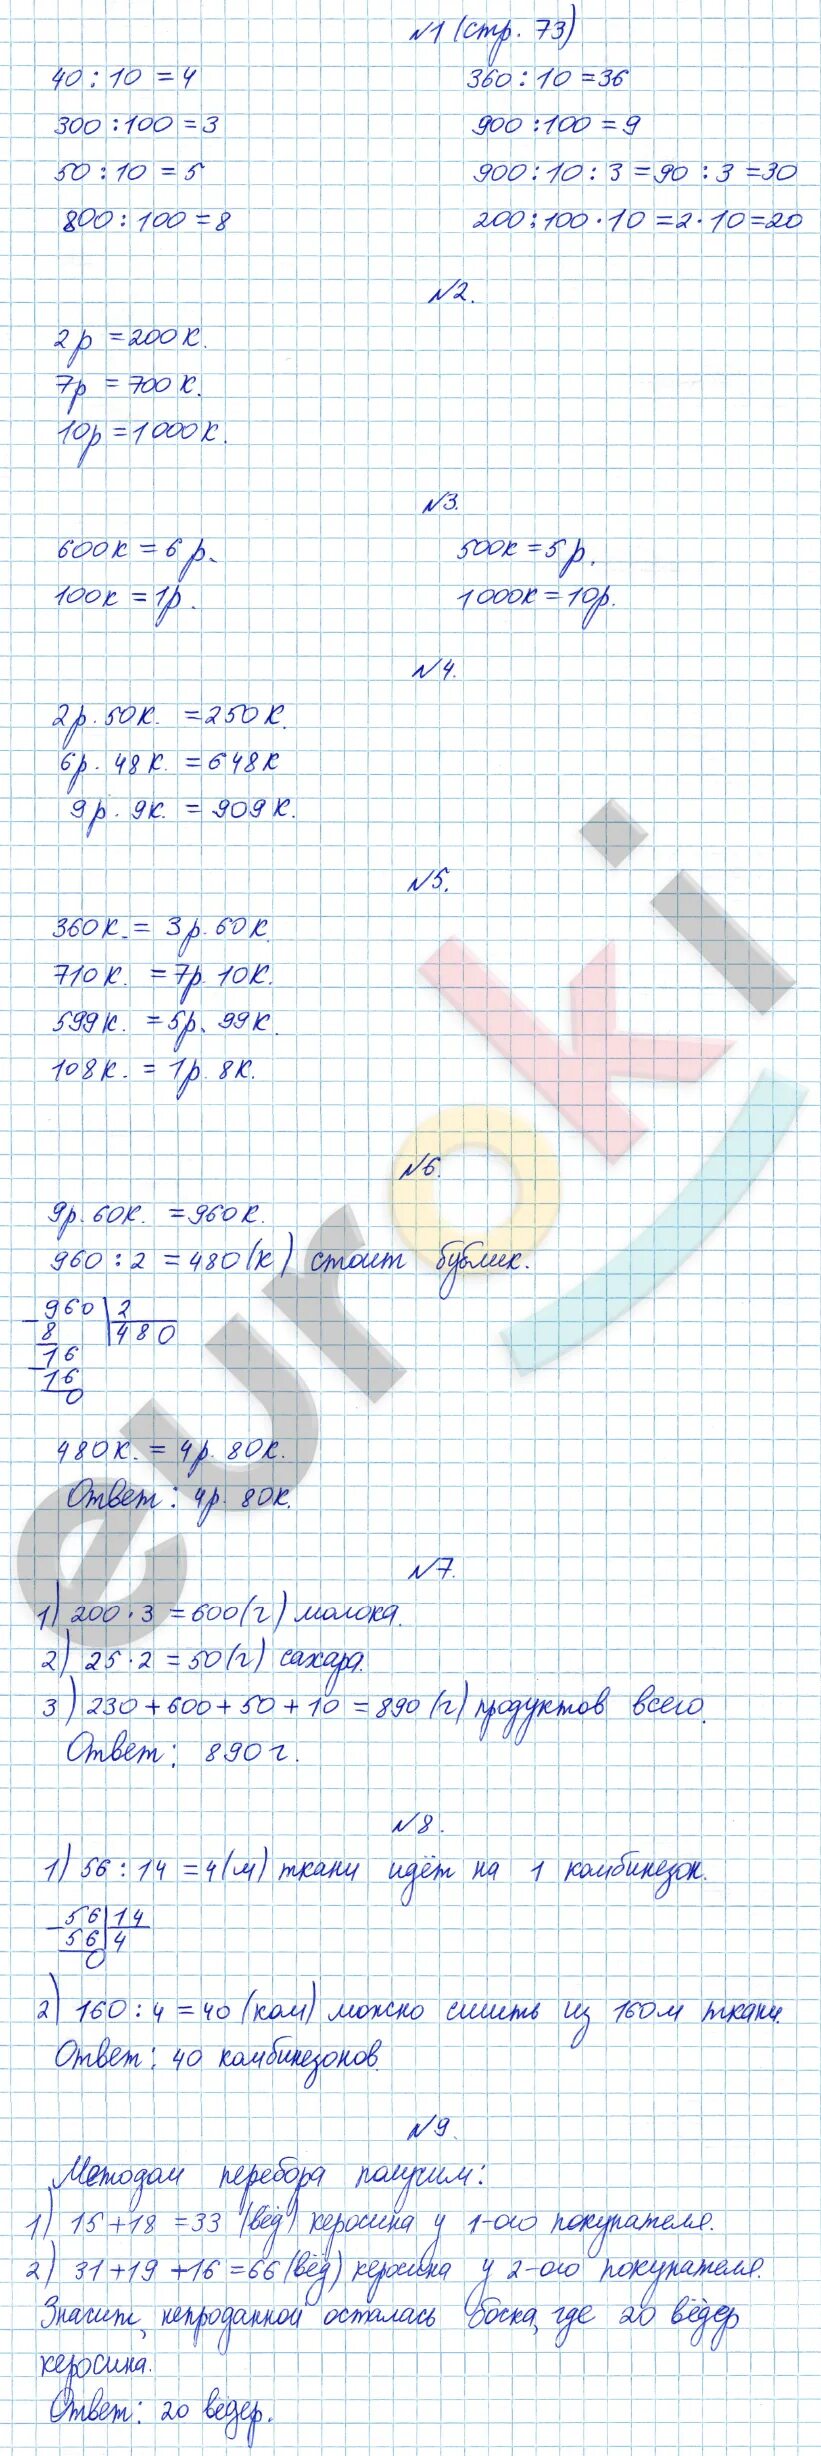 №1 (стр. 73)
40 : 10 = 4
360 : 10 = 36
300 : 100 = 3
900 : 100 = 9
50 : 10 = 5
900 : 10 : 3 = 90 : 3 = 30
800 : 100 = 8
200 : 100 · 10 = 2 · 10 = 20
№2.
2р = 200к.
7р = 700к.
10р = 1000к.
№3.
600к = 6р.
500к = 5р.
100к = 1р.
1000к = 10р.
№4.
2р. 50к. = 250к.
6р. 48к. = 648к
9р. 9к. = 909к.
№5.
360к. = 3р. 60к.
710к. = 7р. 10к.
599к. = 5р. 99к.
108к. = 1р. 8к.
№6.
9р. 60к. = 960к.
960 : 2 = 480 (к) стоит бублик.
960 2
8 480
16
16
0
480к. = 4р. 80к.
Ответ: 4р. 80к.
№7.
1) 200 · 3 = 600 (г) молока.
2) 25 · 2 = 50 (г) сахара.
3) 230 + 600 + 50 + 10 = 890 (г) продуктов всего.
Ответ: 890 г.
№8.
1) 56 : 14 = 4 (м) ткани идёт на 1 комбинезон.
56 14
56 4
0
2) 160 : 4 = 40 (ком) можно сшить из 160м ткани.
Ответ: 40 комбинезонов.
№9.
Методом перебора получим:
1) 15 + 18 = 33 (вёд) керосина у 1-ого покупателя.
2) 31 + 19 + 16 = 66 (вёд) керосина у 2-ого покупателя.
Значит, непроданной осталась бочка, где 20 вёдер
керосина.
Ответ: 20 вёдер.
euroki